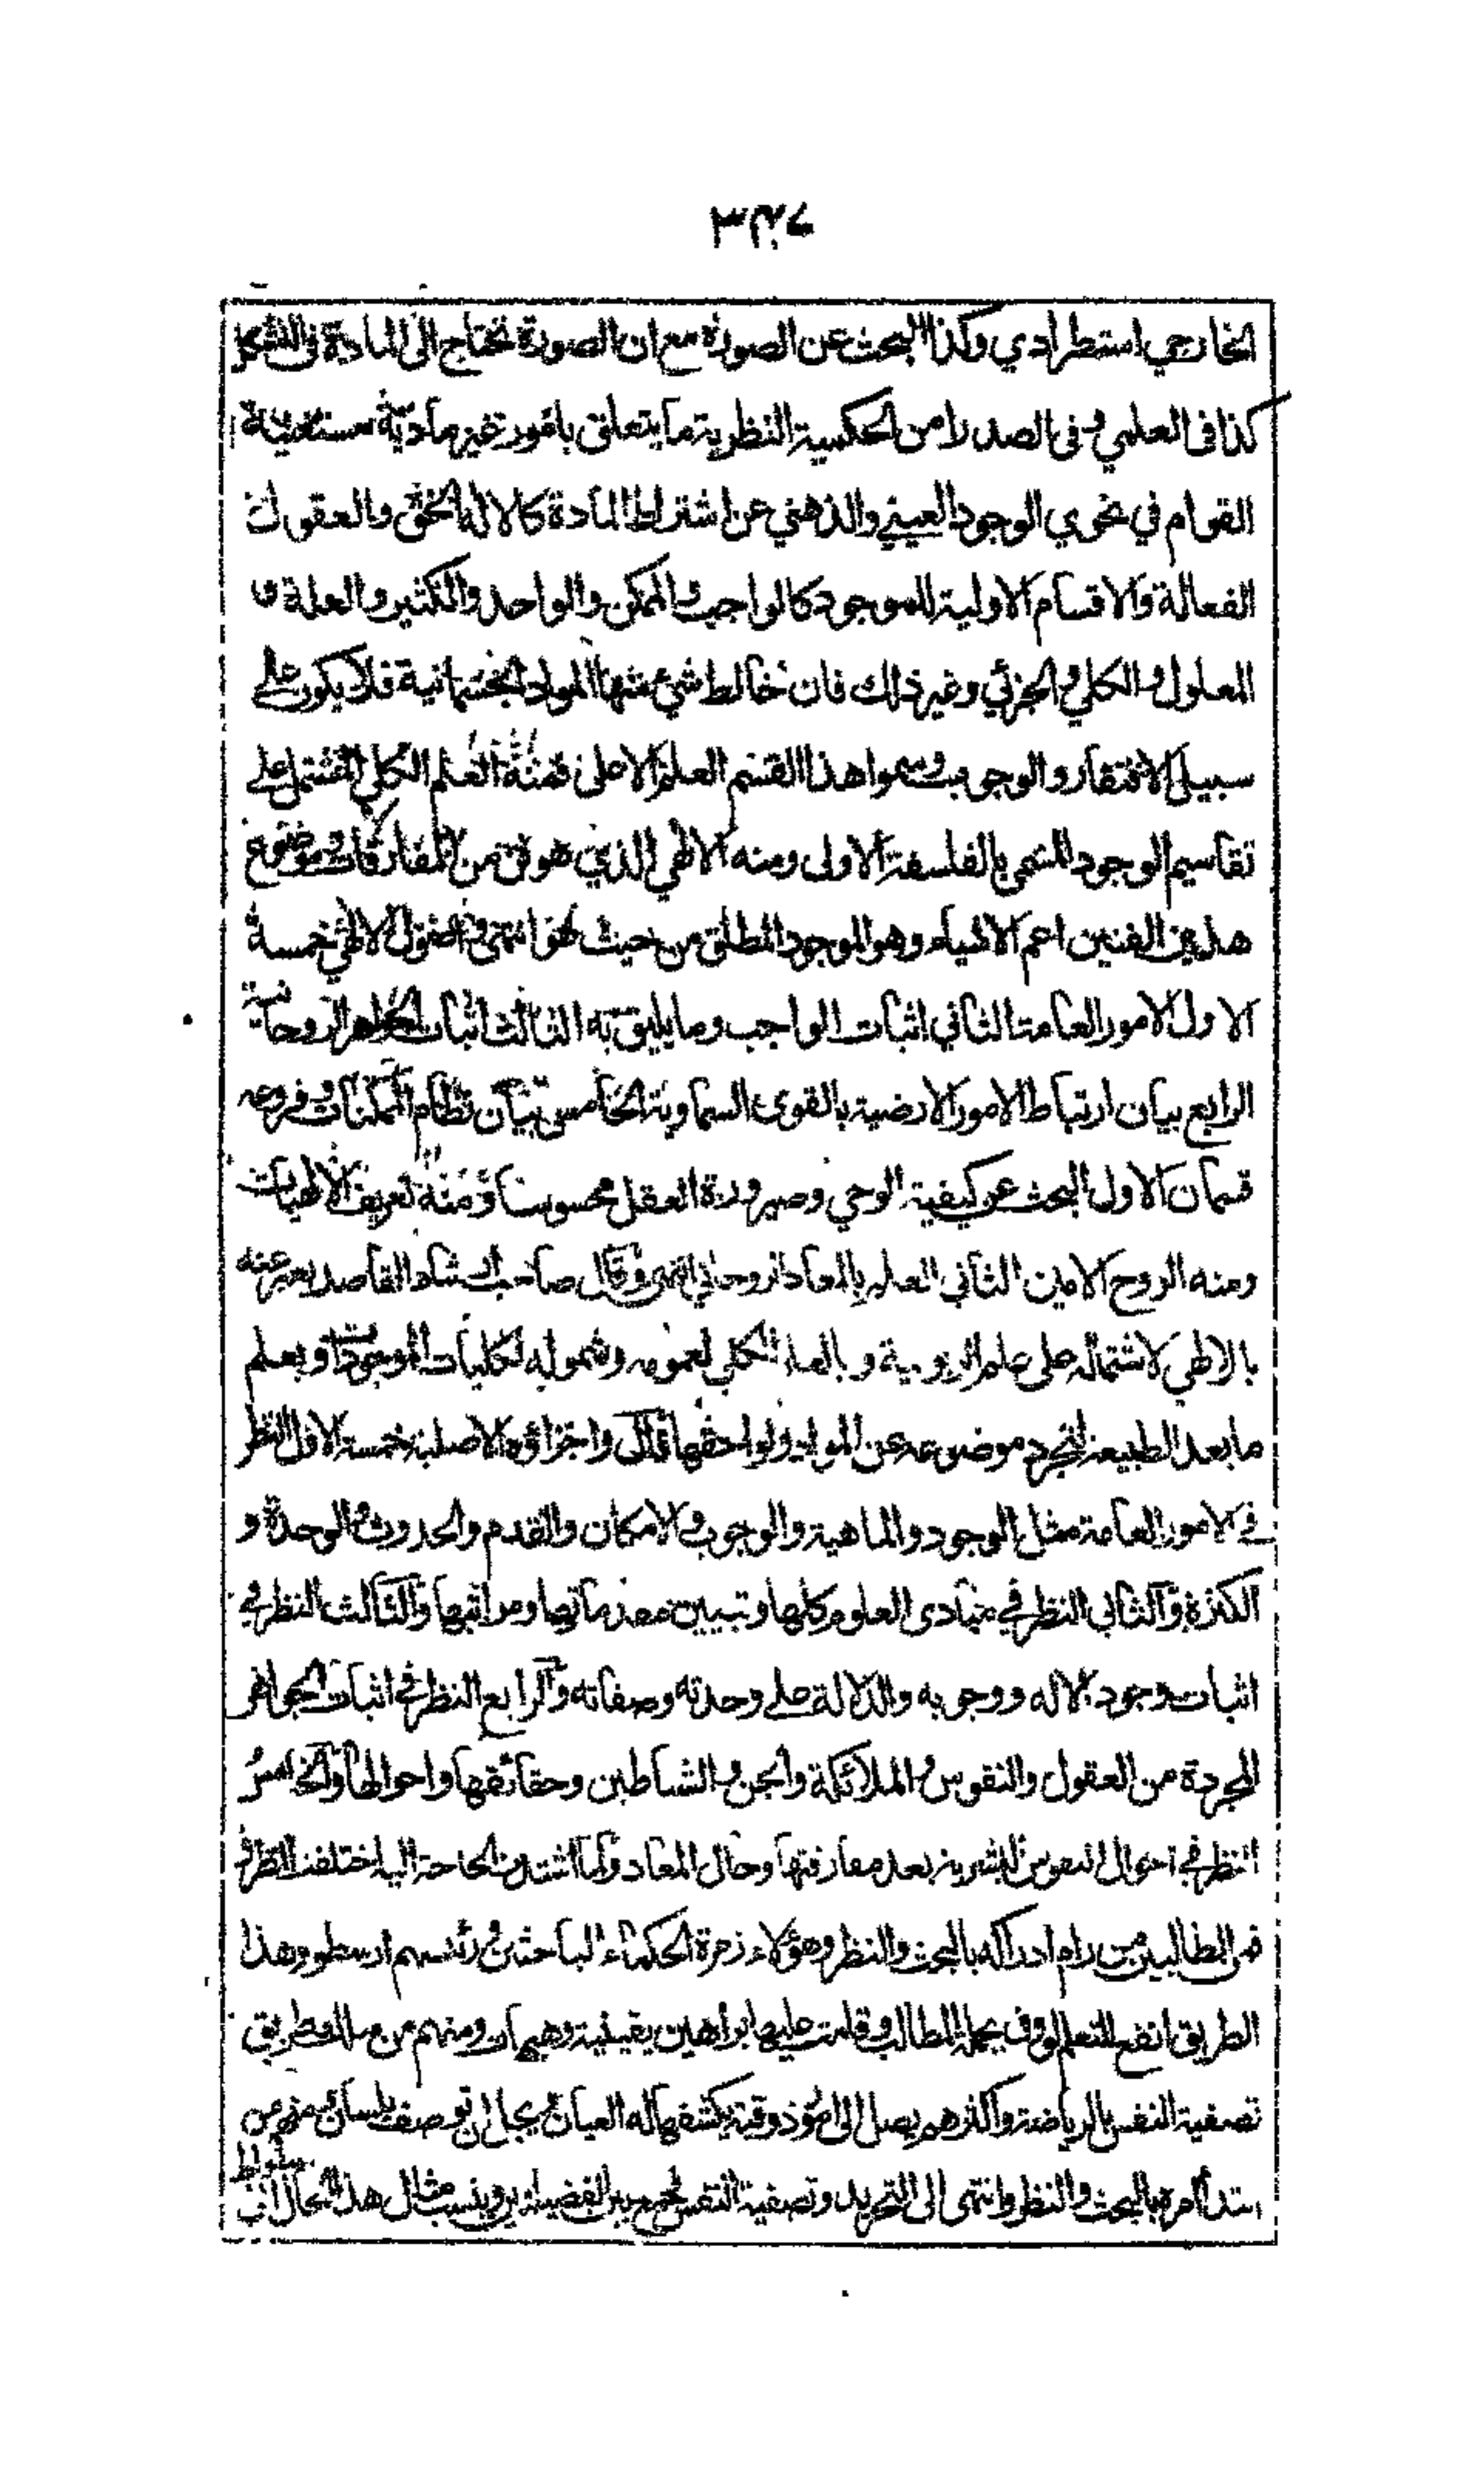 ٣٤٧
الخارجي استطرادي وكذا البحث عن الصورة مع ان الصورة تحتاج الى المادة في التشكل
كذا في العلمي وفي الصدرا من الحكمة النظرية ما يتعلق بامور غير مادية مستغنية
القوام في نحوي الوجود العيني والذهني عن اشتراط المادة كالاله الحق والعقول
الفعالة والاقسام الاولية للموجود كالواجب والممكن والواحد والكثير والعلة و
المعلول والكلي والجزئي وغير ذلك فان خالط شيء منها المواد الجسمانية فلا يكون على
سبيل الافتقار والوجوب وسموا هذا القسم العلم الاعلى فمنه العلم الكلي المشتمل على
تقاسيم الوجود المسمى بالفلسفة الاولى ومنه الالهي الذي هو فن من المفارقات وموضوع
هذين الفنين اعم الاشياء وهو الموجود المطلق من حيث هو انتهى واصول الالهي خمسة
الاول الامور العامة الثاني اثبات الواجب وما يليق به الثالث اثبات الجواهر الروحانية
الرابع بيان ارتباط الامور الارضية بالقوى السماوية الخامس بيان نظام الممكنات وفروعه
قسمان الاول البحث عن كيفية الوحي وصيرورة العقل محسوسا ومنه تعريف الالهيات
ومنه الروح الامين الثاني العلم بالمعاد الروحاني انتهى وقال صاحب ارشاد القاصد يعبر عنه
بالالهي لاشتماله على علم الربوبية وبالعلم الكلي لعمومه وشموله لكليات الموجودات وبعلم
ما بعد الطبيعة لتجرد موضوعه عن المواد ولواحقها قال واجزاؤه الاصلية خمسة الاول النظر
في الامور العامة مثل الوجود والماهية والوجوب والامكان والقدم والحدوث والوحدة و
الكثرة والثاني النظر في مبادي العلوم كلها وتبيين مقدماتها ومراتبها والثالث النظر في
اثبات وجود الاله ووجوبه والدلالة على وحدته وصفاته والرابع النظر في اثبات الجواهر
المجردة من العقول والنفوس والملائكة والجن والشياطين وحقائقها واحوالها والخامس
النظر في احوال النفوس البشرية بعد مفارقتها وحال المعاد ولما اشتدت الحاجة اليه اختلفت الطرق
فمن الطالبين من رام ادراكه بالبحث والنظر وهؤلاء زمرة الحكماء الباحثين ورئيسهم ارسطو وهذا
الطريق انفع للتعلم لو وفى بجملة المطالب وقامت عليها براهين يقينية وهيهات ومنهم من سلك طريق
تصفية النفس بالرياضة واكثرهم يصل الى امور ذوقية يكشفها له العيان ويجل ان توصف بلسان ومنهم من
ابتدأ امره بالبحث والنظر وانتهى الى التجريد وتصفية النفس فجمع بين الفضيلتين وينسب مثال هذا الحال الى
سقراط